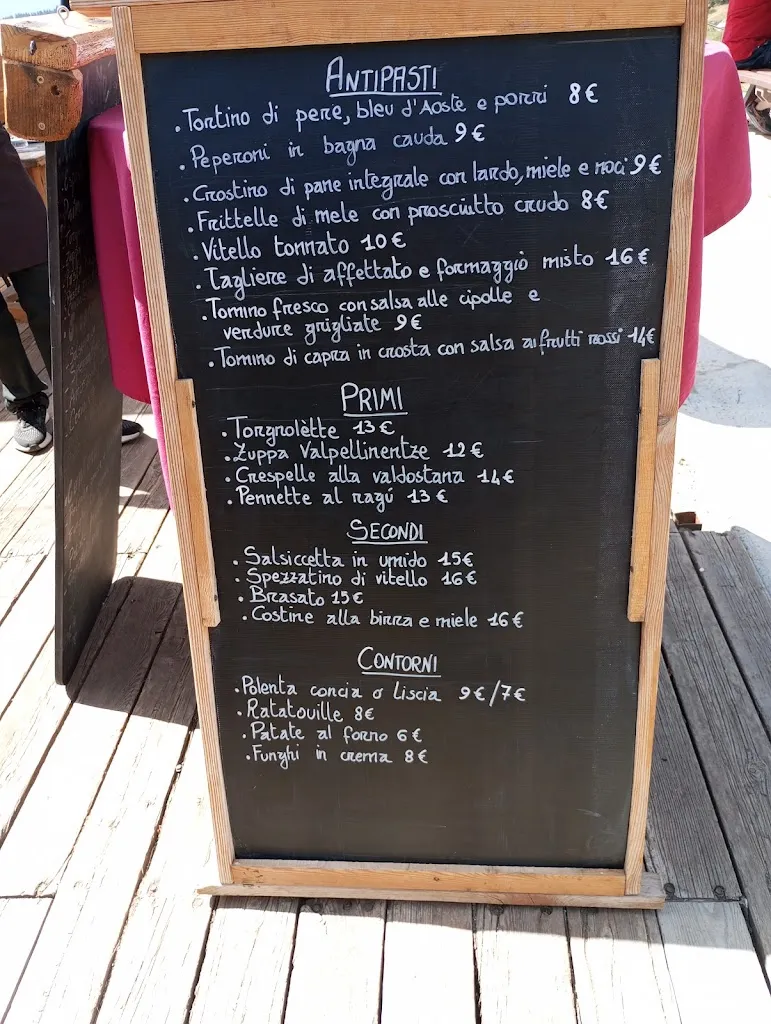 ANTIPASTI
• Tortino di pere, bleu d'Aoste e porri 8€
• Peperoni in bagna cauda 9€
• Crostino di pane integrale con lardo, miele e noci 9€
• Frittelle di mele con prosciutto crudo 8€
• Vitello tonnato 10€
• Tagliere di affettato e formaggio misto 16€
• Tomino fresco con salsa alle cipolle e
verdure grigliate 9€
• Tomino di capra in crosta con salsa ai frutti rossi 14€
PRIMI
• Torgnolètte 13€
• Zuppa Valpellinentze 12€
• Crespelle alla valdostana 14€
• Pennette al ragú 13€
SECONDI
• Salsiccetta in umido 15€
• Spezzatino di vitello 16€
• Brasato 15€
• Costine alla birra e miele 16€
CONTORNI
• Polenta concia o liscia 9€/7€
• Ratatouille 8€
• Patate al forno 6€
• Funghi in crema 8€